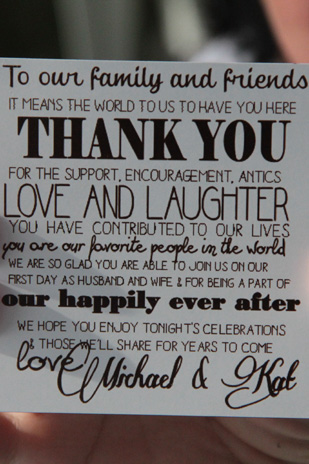 To our family and friends
IT MEANS THE WORLD TO US TO HAVE YOU HERE
THANK YOU
FOR THE SUPPORT, ENCOURAGEMENT, ANTICS
LOVE AND LAUGHTER
YOU HAVE CONTRIBUTED TO OUR LIVES
you are our favorite people in the world
WE ARE SO GLAD YOU ARE ABLE TO JOIN US ON OUR
FIRST DAY AS HUSBAND AND WIFE & FOR BEING A PART OF
our happily ever after
WE HOPE YOU ENJOY TONIGHT'S CELEBRATIONS
& THOSE WE'LL SHARE FOR YEARS TO COME
love, Michael & Kat